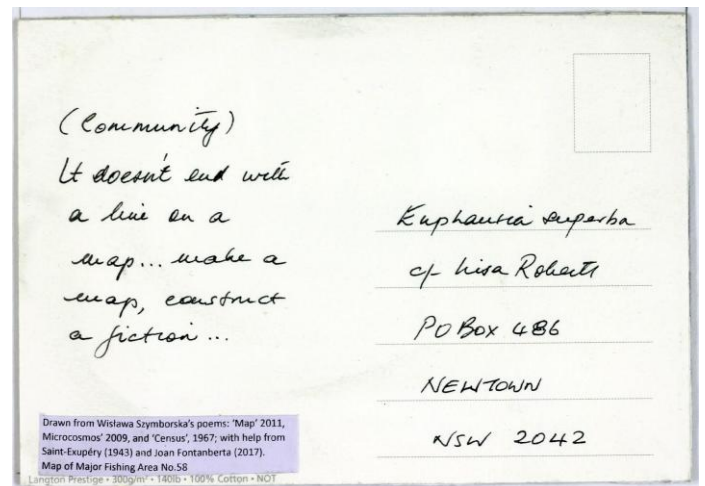 (Community)
It doesn't end with
a line on a
map... make a
map, construct
a fiction...
Euphausia superba
c/- Lisa Roberts
PO Box 486
NEWTOWN
NSW 2042
Drawn from Wisława Szymborska's poems: 'Map' 2011,
Microcosmos' 2009, and 'Census', 1967; with help from
Saint-Exupéry (1943) and Joan Fontanberta (2017).
Map of Major Fishing Area No.58
Langton Prestige • 300g/m² • 140lb • 100% Cotton • NOT